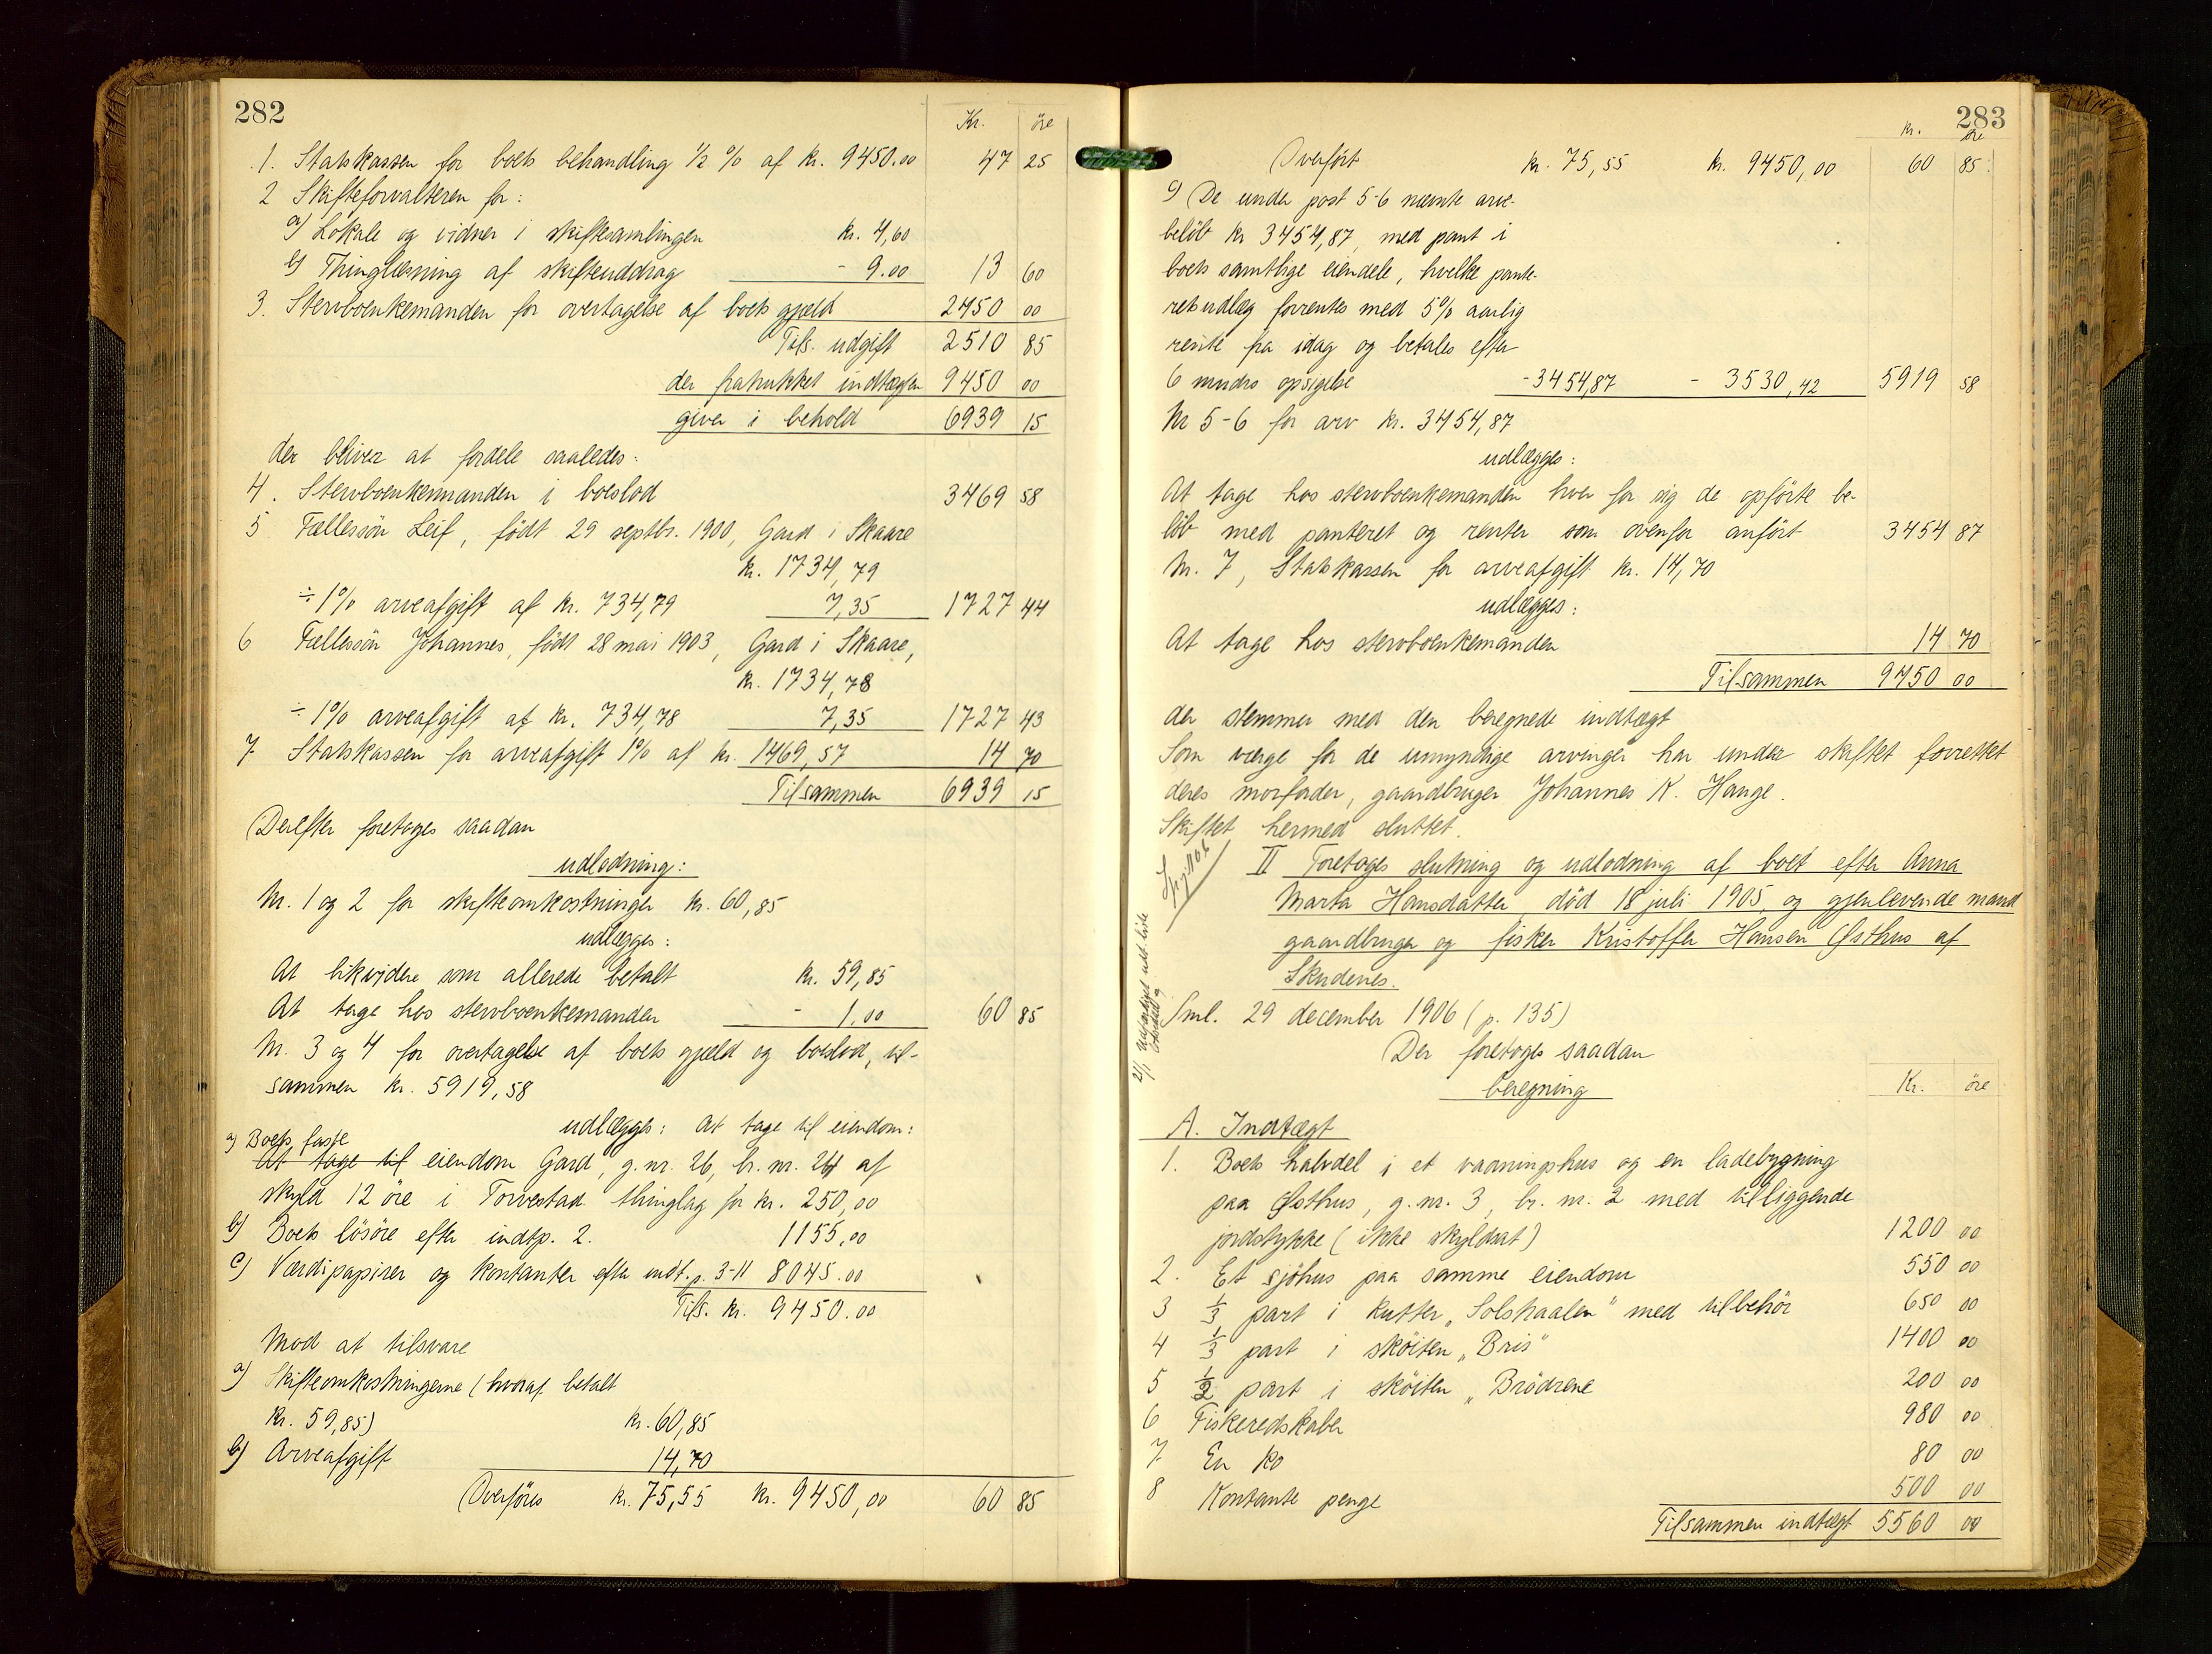 282
Kr. öre
1. Statskassen for boets behandling ½ % af kr. 9450.00 47 25
2 Skifteforvalteren for:
a) Lokale og vidner i skiftesamlingen kr. 4,60
b) Thinglæsning af skifteuddrag - 9.00 13 60
3. Stervboenkemanden for overtagelse af boets gjæld 2450 00
Tils. udgift 2510 85
der fratrukket indtægten 9450 00
giver i behold 6939 15
der bliver at fordele saaledes:
4. Stervboenkemanden i boeslod 3469 58
5 Fællessön Leif, födt 29 septbr. 1900, Gard i Skaare
kr. 1734,79
÷ 1% arveafgift af kr. 734,79 7,35 1727 44
6 Fællessön Johannes, födt 28 mai 1903, Gard i Skaare,
kr. 1734,78
÷ 1% arveafgift af kr. 734,78 7,35 1727 43
7 Statskassen for arveafgift 1% af kr. 1469,57 14 70
Tilsammen 6939 15
Derefter foretoges saadan
udlodning:
Nr. 1 og 2 for skifteomkostninger kr. 60,85
udlægges:
At likvidere som allerede betalt kr. 59,85
At tage hos stervboenkemanden - 1,00 60 85
Nr. 3 og 4 for overtagelse af boets gjæld og boeslod, til-
sammen kr. 5919,58
udlægges: At tage til eiendom:
a) Boets faste
At tage til eiendom Gard, g.nr. 26, br. nr. 24 af
skyld 12 öre i Torvestad thinglag for kr. 250,00
b) Boets lösöre efter indtp. 2. 1155,00
c) Værdipapirer og kontanter efter indt.p. 3-11 8045.00
Tils. kr. 9450.00
Mod at tilsvare
a) Skifteomkostningerne (hvoraf betalt
kr. 59,85) kr. 60,85
b) Arveafgift 14,70
Overföres kr. 75,55 kr. 9450,00 60 85
283
kr. öre
Overfört kr. 75,55 kr. 9450,00 60 85
c) De under post 5-6 nævnte arve-
belöb kr 3454,87, med pant i
boets samtlige eiendele, hvilke pante-
retsudlæg forrentes med 5% aarlig
rente fra idag og betales efter
6 mndrs opsigelse - 3454,87 - 3530,42 5919 58
Nr 5-6 for arv kr. 3454,87
udlægges:
At tage hos stervboenkemanden hver for sig de opförte be-
löb med panteret og renter som ovenfor anfört 3454 87
Nr. 7, Statskassen for arveafgift kr. 14,70
udlægges:
At tage hos stervboenkemanden 14 70
Tilsammen 9450 00
der stemmer med den beregnede indtægt
Som værge for de umyndige arvinger har under skiftet forrettet
deres morfader, gaardbruger Johannes K. Hauge.
Skiftet hermed sluttet.
II Foretoges slutning og udlodning af boet efter Anna
Marta Hansdatter död 18 juli 1905, og gjenlevende mand
gaardbruger og fisker Kristoffer Hansen Østhus af
Skudenes.
Sml. 29 december 1906 (p. 135)
Der foretoges saadan
beregning
Kr. öre
A. Indtægt
1. Boets halvdel i et vaaningshus og en ladebygning
paa Østhus, g.nr. 3, br. nr. 2 med tilliggende
jordstykke (ikke skyldsat) 1200 00
2. Et sjöhus paa samme eiendom 550 00
3 1/3 part i kutter „Solstraalen" med tilbehör 650 00
4 1/3 part i sköiten „Bris" 1400 00
5 1/2 part i sköiten „Brödrene 200 00
6 Fiskeredskaber 980 00
7 En ko 80 00
8 Kontante penge 500 00
Tilsammen indtægt 5560 00